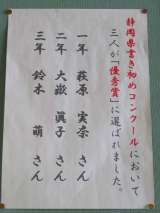 静岡県書き初めコンクールにおいて
三人が「優秀賞」に選ばれました。
一年 萩原 実奈 さん
二年 大嶽 眞子 さん
三年 鈴木 萌 さん